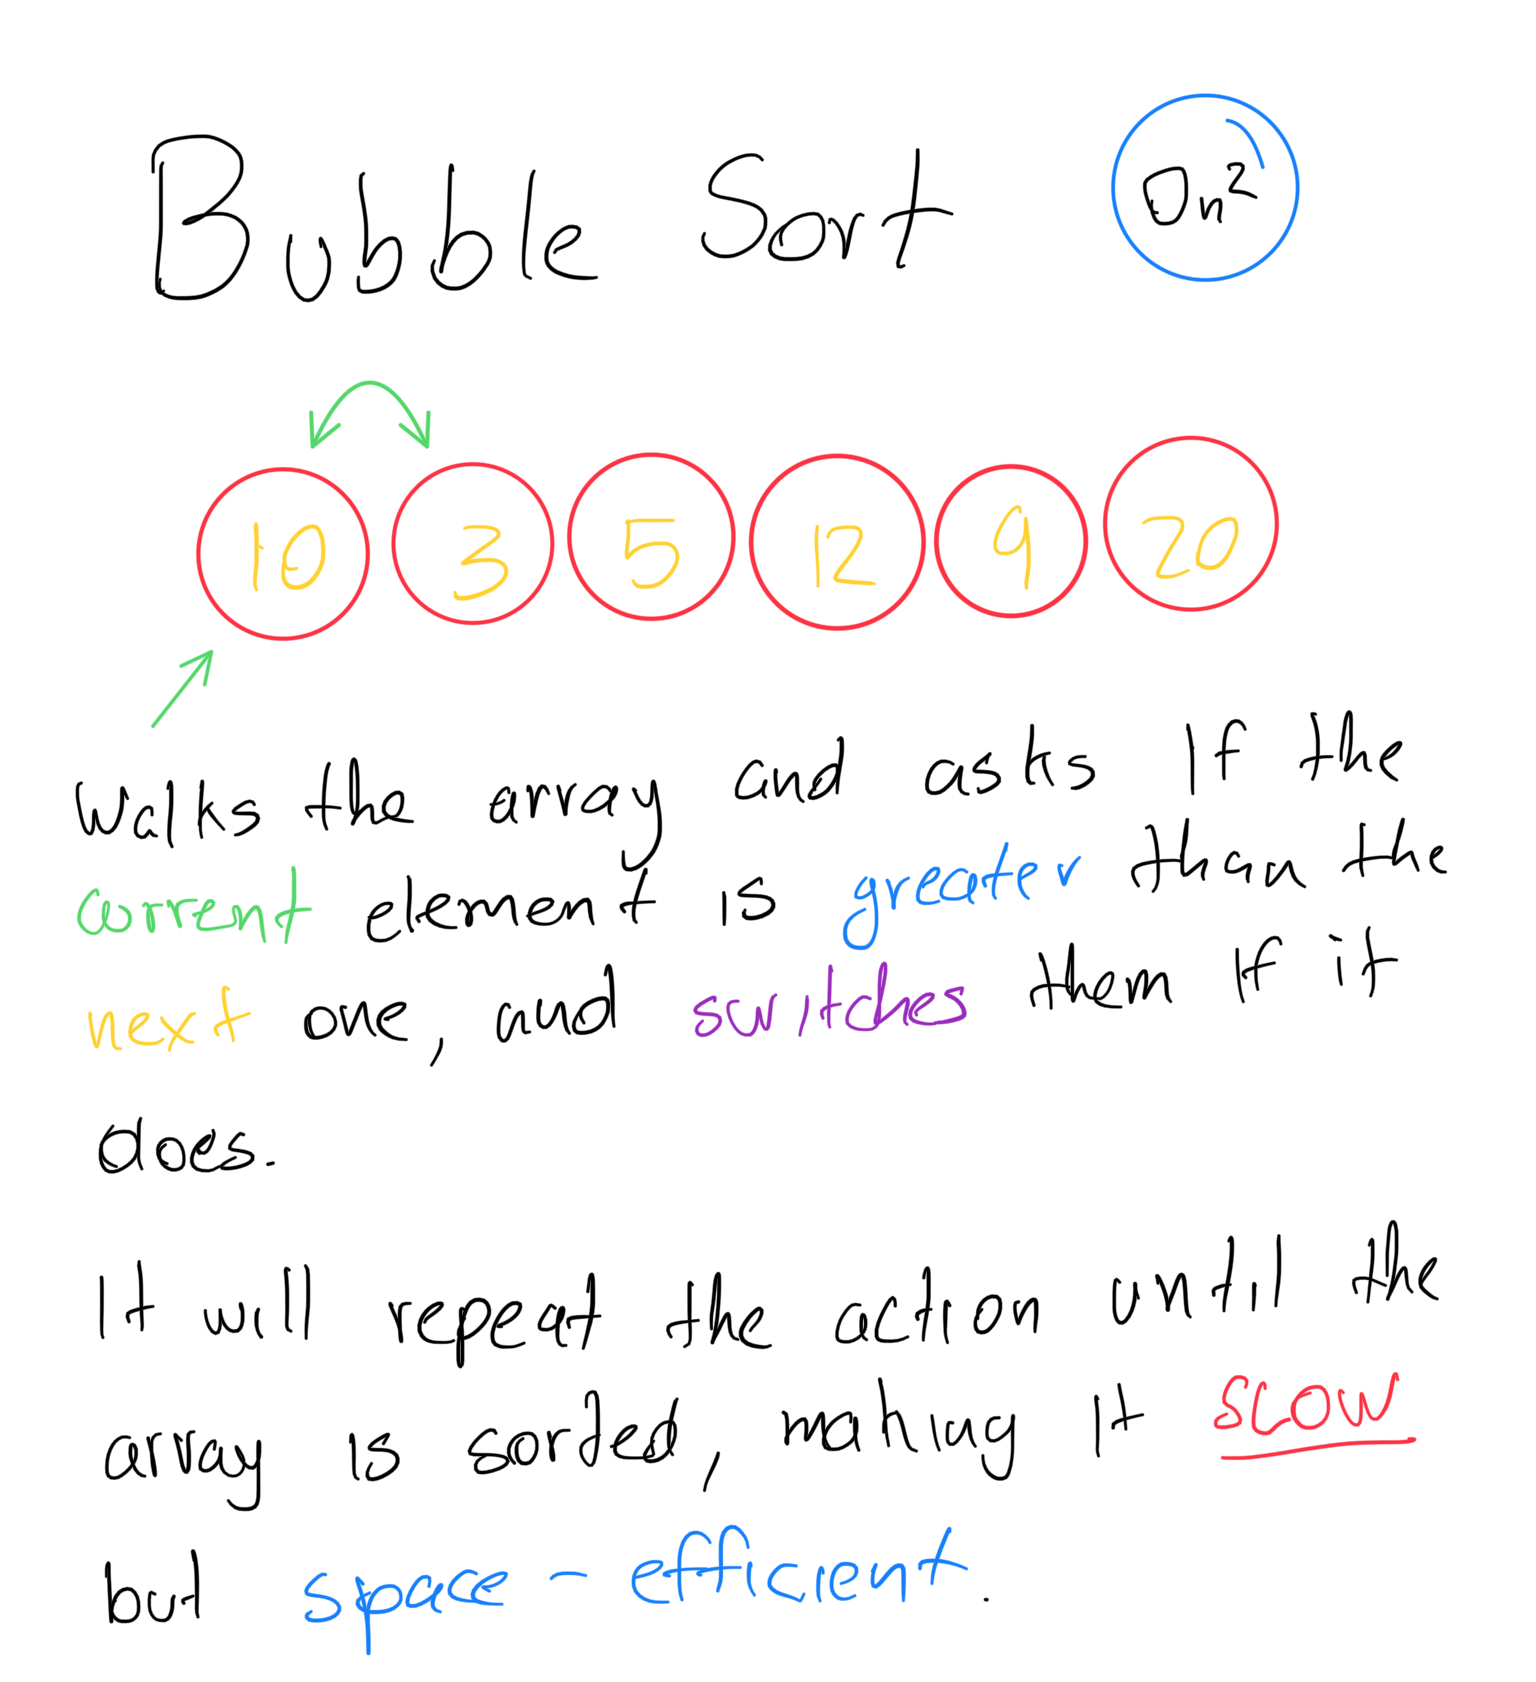 Bubble Sort
On²
10 3 5 12 9 20
Walks the array and asks If the
current element is greater than the
next one, and switches them If it
does.
It will repeat the action until the
array is sorted, making It SLOW
but space-efficient.